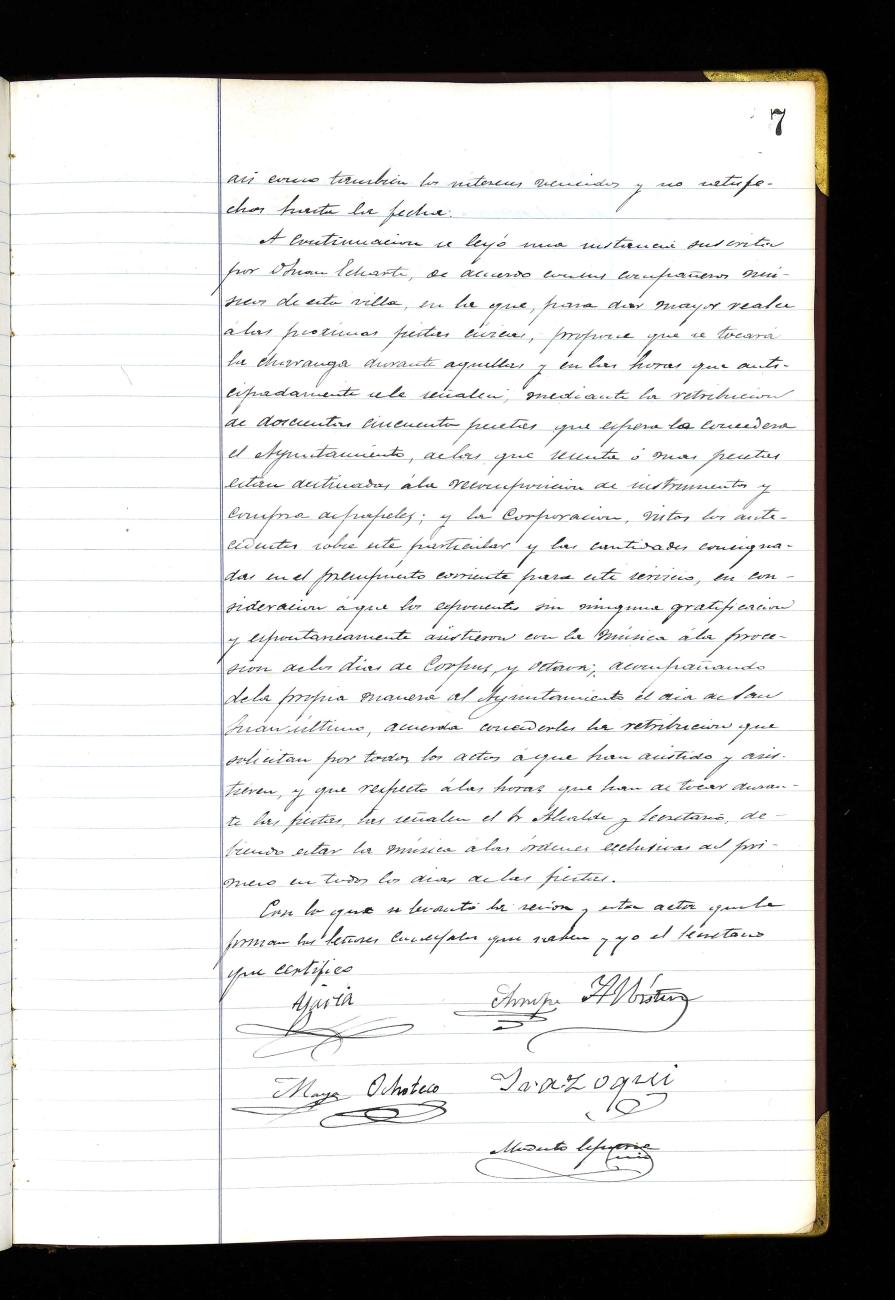 7
asi como tambien los intereses vencidos y no satisfe-
chos hasta la fecha.
A continuacion se leyó una instancia suscrita
por D Juan Echarte, de acuerdo con sus compañeros mú-
sicos de esta villa, en la que, para dar mayor realce
a las proximas fiestas civicas, propone que se tocará
la charanga durante aquellas y en las horas que anti-
cipadamente se le señalen, mediante la retribucion
de doscientas cincuenta pesetas que espera le concederá
el Ayuntamiento, de las que setenta ó mas pesetas
estan destinadas á la recomposicion de instrumentos y
compra de papeles; y la Corporacion, vistos los ante-
cedentes sobre este particular y las cantidades consigna-
das en el presupuesto corriente para este servicio, en con-
sideracion á que los esponentes sin ninguna gratificacion
y espontaneamente asistieron con la música á la proce-
sion de los dias de Corpus, y octava; acompañando
de la propia manera al Ayuntamiento el dia de San
Juan último, acuerda concederles la retribucion que
solicitan por todos los actos á que han asistido y asis-
tieren, y que respecto á las horas que han de tocar duran-
te las fiestas, las señalen el Sr Alcalde y Secretario, de-
biendo estar la música á las órdenes exclusivas del pri-
mero en todos los dias de las fiestas.
Con lo que se levantó la sesion y esta acta que la
firman los Señores Concejales que saben y yo el Secretario
que certifico
Maya Ochoteco Irazoqui
Modesto